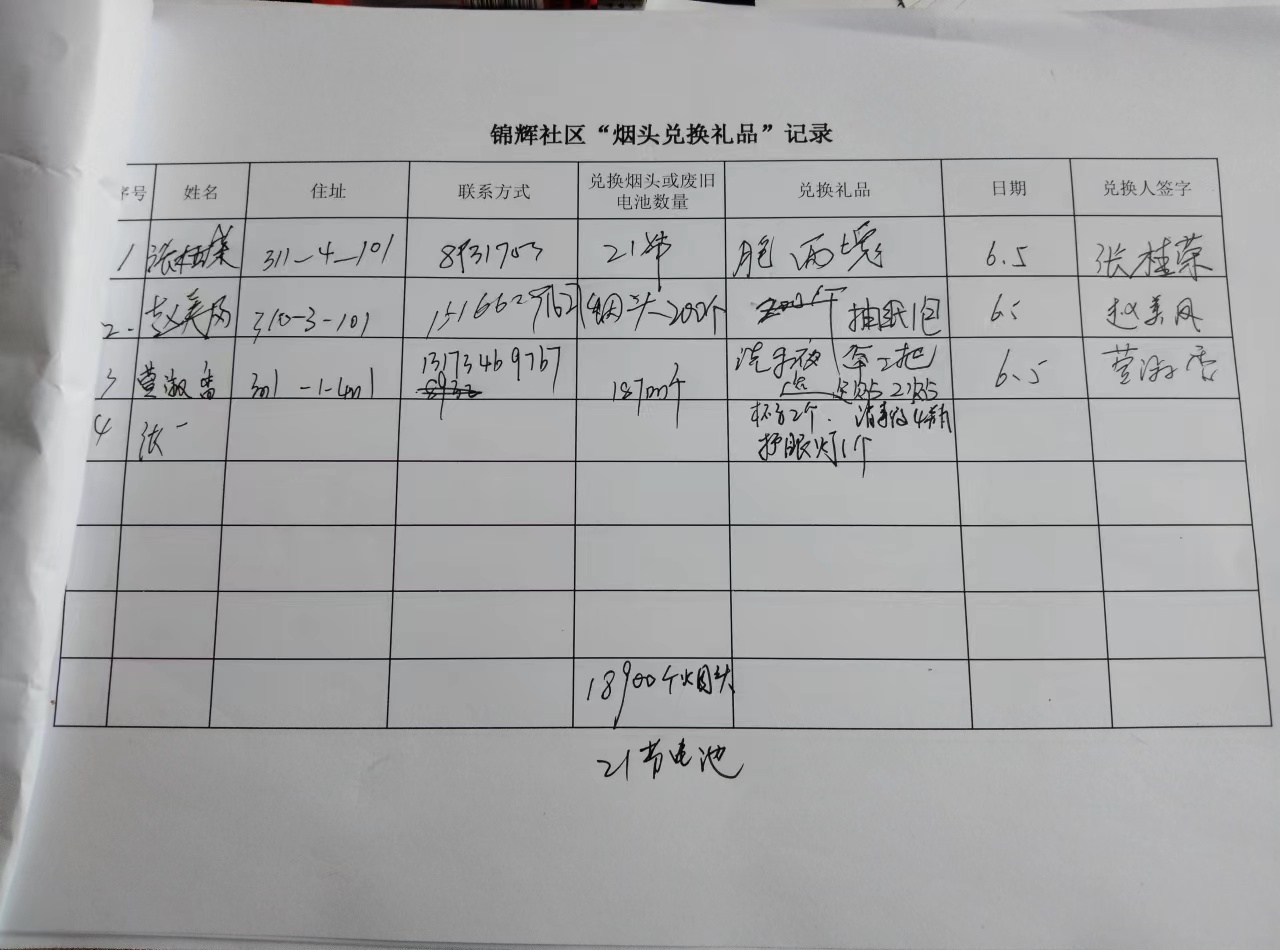 锦辉社区“烟头兑换礼品”记录
序号 姓名 住址 联系方式 兑换烟头或废旧电池数量 兑换礼品 日期 兑换人签字
1 张桂荣 311-4-101 8931703 21节 肥皂两块 6.5 张桂荣
2. 赵美凤 310-3-101 烟头200个 抽纸1包 6.5 赵美凤
3 301-1-401 13173469767 18700个 洗手液 伞二把 6.5
4 张一 杯子2个. 4瓶
护眼灯1个
18900个烟头
21节电池